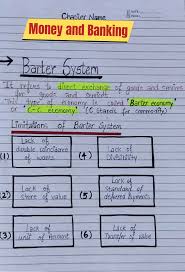 Chapter Name
Money and Banking
Barter System
It refers to direct exchange of goods and services
for goods and services
This type of economy is called "Barter economy"
or "C-C economy". (C stands for commodity)
Limitations of Barter System
(1) Lack of
double coincidence
of wants
(4) Lack of
Divisibility
(2) Lack of
store of value
(5) Lack of
Standard of
deferred payments
(3) Lack of
unit of Account
(6) Lack of
Transfer of value